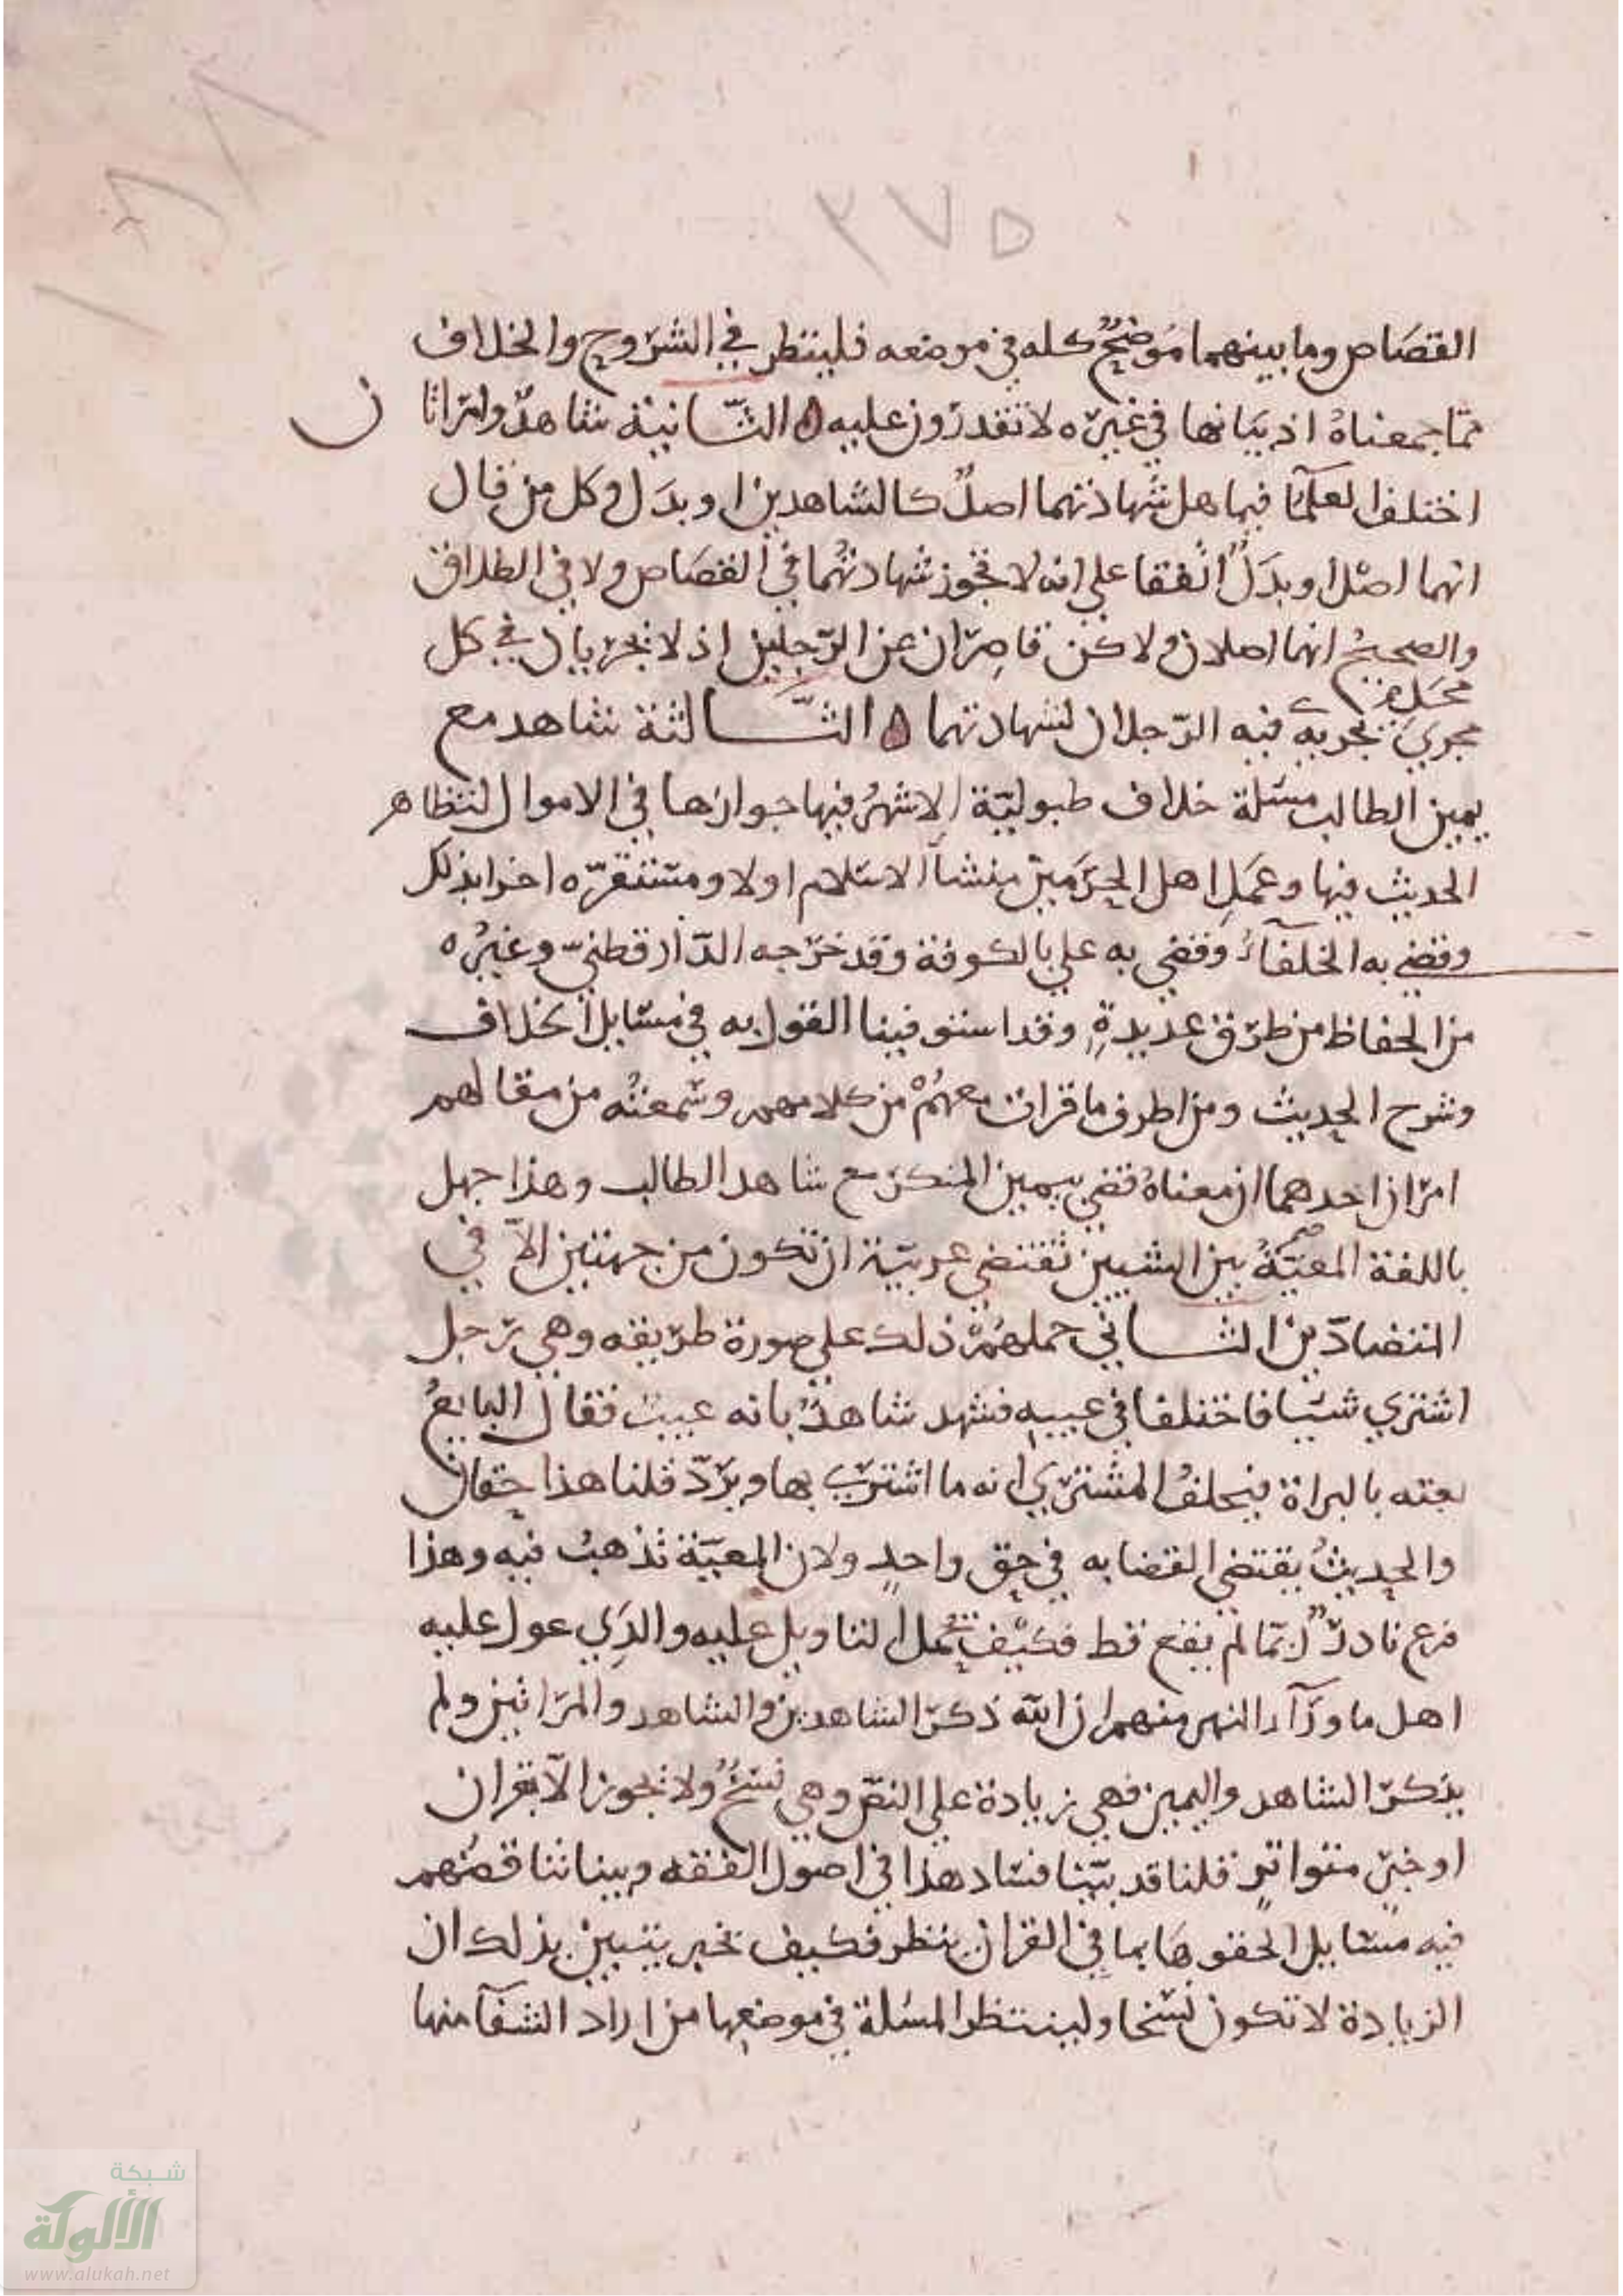 ١٨٨
٢٧٥
القصاص وما بينهما موضح كله في موضعه فلينظر في الشروح والخلاف
مما جمعناه اذ بيانها في غيره لا تقدرون عليه ٥ الثانية شاهد وامراتان
اختلف العلما فيما هل شهادتهما اصل كالشاهدين او بدل وكل من قال
انهما اصل او بدل اتفقا على انه لا تجوز شهادتهما في القصاص ولا في الطلاق
والصحيح انهما اصلان ولاكن قاصران عن الرجلين اذ لا يجريان في كل
محل
مجرى يجري فيه الرجلان لشهادتهما ٥ الثالثة شاهد مع
يمين الطالب مسئلة خلاف طبولية الاشهر فيها جوازها في الاموال لتظاهر
الحديث فيها وعمل اهل الحرمين منشا الاسلام اولا ومستقره اخرا بذلك
وقضى به الخلفاء وقضى به علي بالكوفة وقد خرجه الدارقطني وغيره
من الحفاظ من طرق عديدة وقد استوفينا القول به في مسايل الخلاف
وشرح الحديث ومن اطرف ما قرات معهم من كلامهم وسمعته من مقالهم
امران احدهما ان معناه قضى بيمين المنكر مع شاهد الطالب وهذا جهل
باللغة المعية بين الشيين تقتضي عربية ان تكون من جهتين الا في
المتضادين الثاني حملهم ذلك على صورة طريقه وهي رجل
اشترى شيا فاختلفا في عيبه فشهد شاهد بانه عيب فقال البايع
بعته بالبراة فيحلف المشتري انه ما اشترى بها ويرد قلنا هذا حقان
والحديث يقتضي القضا به في حق واحد ولان المعية تذهب فيه وهذا
فرع نادر ربما لم يقع قط فكيف يحمل التاويل عليه والذي عول عليه
اهل ما ورآء النهر منهم ان الله ذكر الشاهدين والشاهد والمراتين ولم
يذكر الشاهد واليمين فهي زيادة على النص وهي نسخ ولا تجوز الا بقران
او خبر متواتر قلنا قد بينا فساد هذا في اصول الفقه وبينا تناقضهم
فيه مسايل الحقوها بما في القران بنظر فكيف بخبر يتبين بذلك ان
الزيادة لا تكون نسخا ولينظر المسلة في موضعها من اراد الشفآ منها
شبكة
الألوكة
www.alukah.net